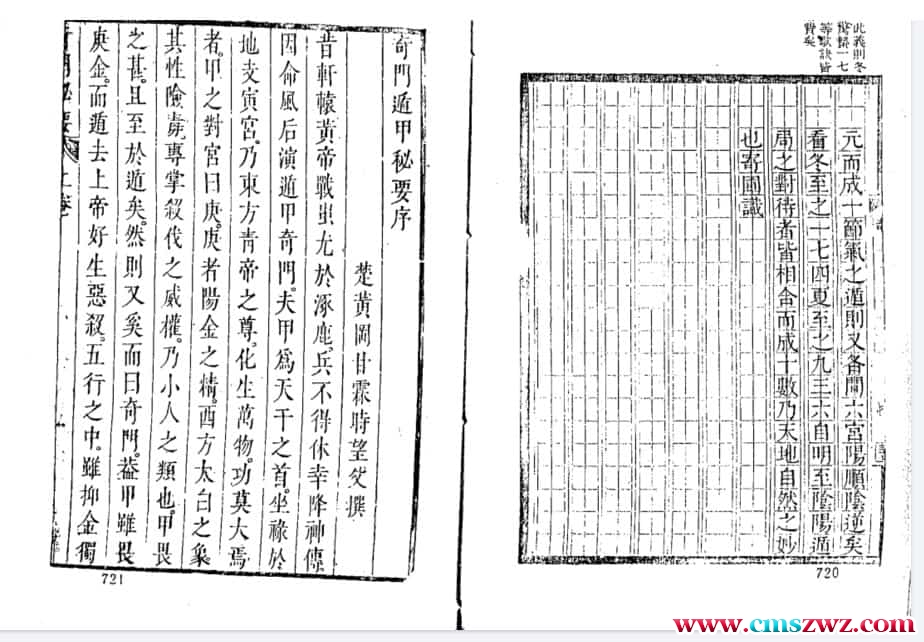 此義則冬
驚蟄一七
等歌訣皆
賛矣
元而成十節氣之遁則又各閏六宮陽順陰逆矣
看冬至之一七四夏至之九三六自明至陰陽遁
局之對待者皆相合而成十數乃天地自然之妙
也寄圖識
720
奇門遁甲秘要序
楚黃岡甘霖時望父撰
昔軒轅黃帝戰蚩尤於涿鹿。兵不得休幸降神傳
因命風后演遁甲奇門。夫甲爲天干之首。坐祿於
地支寅宮。乃東方青帝之尊。化生萬物。功莫大焉
者。甲之對宮曰庚。庚者陽金之精。西方太白之象
其性險毒。專掌殺伐之威權。乃小人之類也。甲畏
之甚。且至於遁矣。然則又奚而曰奇門。葢甲雖畏
庚金。而遁去上帝好生惡殺。五行之中。雖抑金獨
奇門秘要 上卷
721
www.cmszwz.com